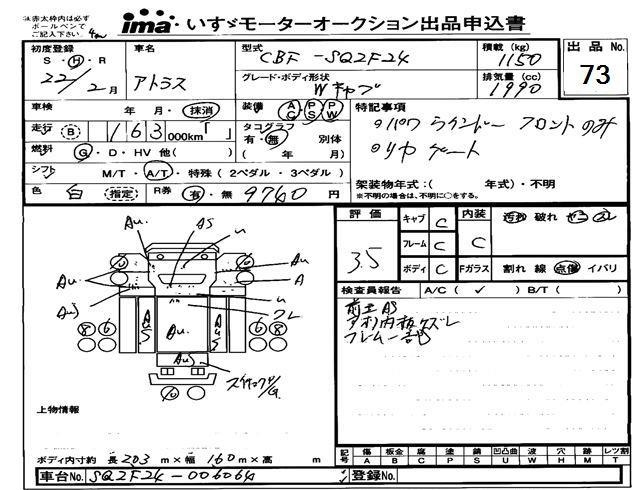 ※赤太枠内は必ず
ボールペンで
ご記入下さい。
ima いすゞモーターオークション出品申込書
初度登録
S・H・R
22/2月
車名
アトラス
型式
CBF-SQ2F24
グレード・ボディ形状
Wキャブ
積載(kg)
1150
排気量(cc)
1990
出品No.
73
車検 年・月・抹消
装備 AC PS PW
特記事項
走行 B 163 000km「 」
タコグラフ
有・無 別体
( 年 月)
パワーウインドー フロントのみ
リヤゲート
燃料 G・D・HV 他( )
シフト M/T・A/T・特殊(2ペダル・3ペダル)
架装物年式:( 年式)・不明
※不明の場合は、不明に○をする。
色 白 指定 R券 有・無 9760円
評価
3.5
キャブ C
フレーム C
ボディ C
内装 C
破れ
Fガラス 割れ 線 点傷 イバリ
検査員報告 A/C(✓) B/T( )
前エAS
アオリ内板クズレ
フレム一部
AU AS u
AU AU
A
AU u
フレ
8 6 AUS AU AUS 6 8
AUS
上物情報
ボディ内寸約 長203m×幅160m×高 m
記号 傷A 板金B 腐C 塗P 錆S 凹凸曲U 波W 穴H 跡M レツ割T
車台No. SQ2F24-006064
登録No.